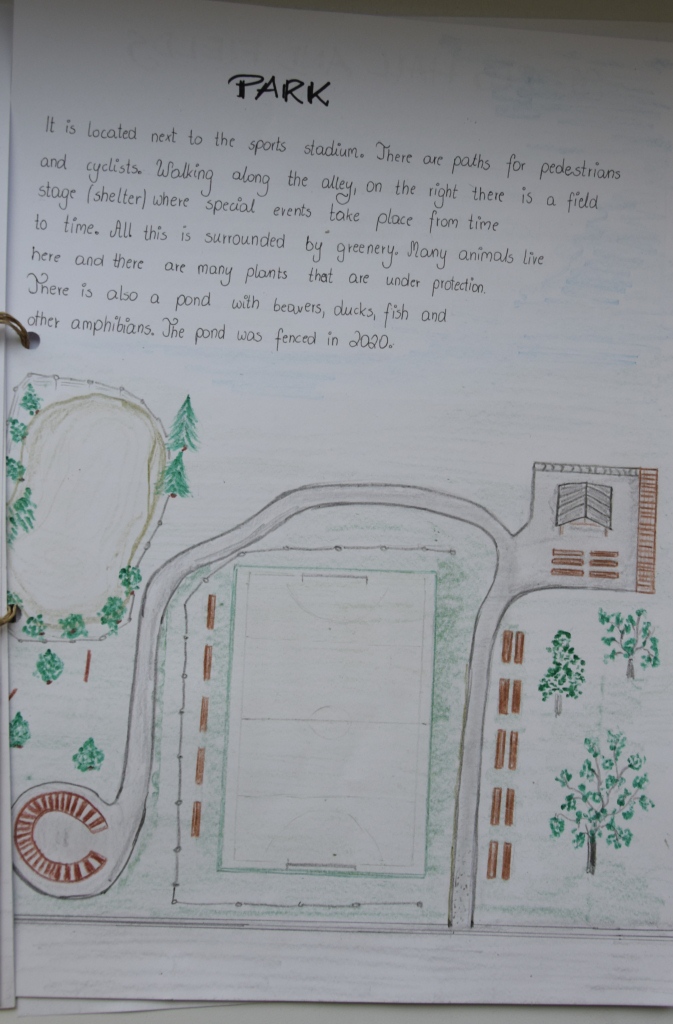 PARK
It is located next to the sports stadium. There are paths for pedestrians
and cyclists. Walking along the alley, on the right there is a field
stage (shelter) where special events take place from time
to time. All this is surrounded by greenery. Many animals live
here and there are many plants that are under protection.
There is also a pond with beavers, ducks, fish and
other amphibians. The pond was fenced in 2020.